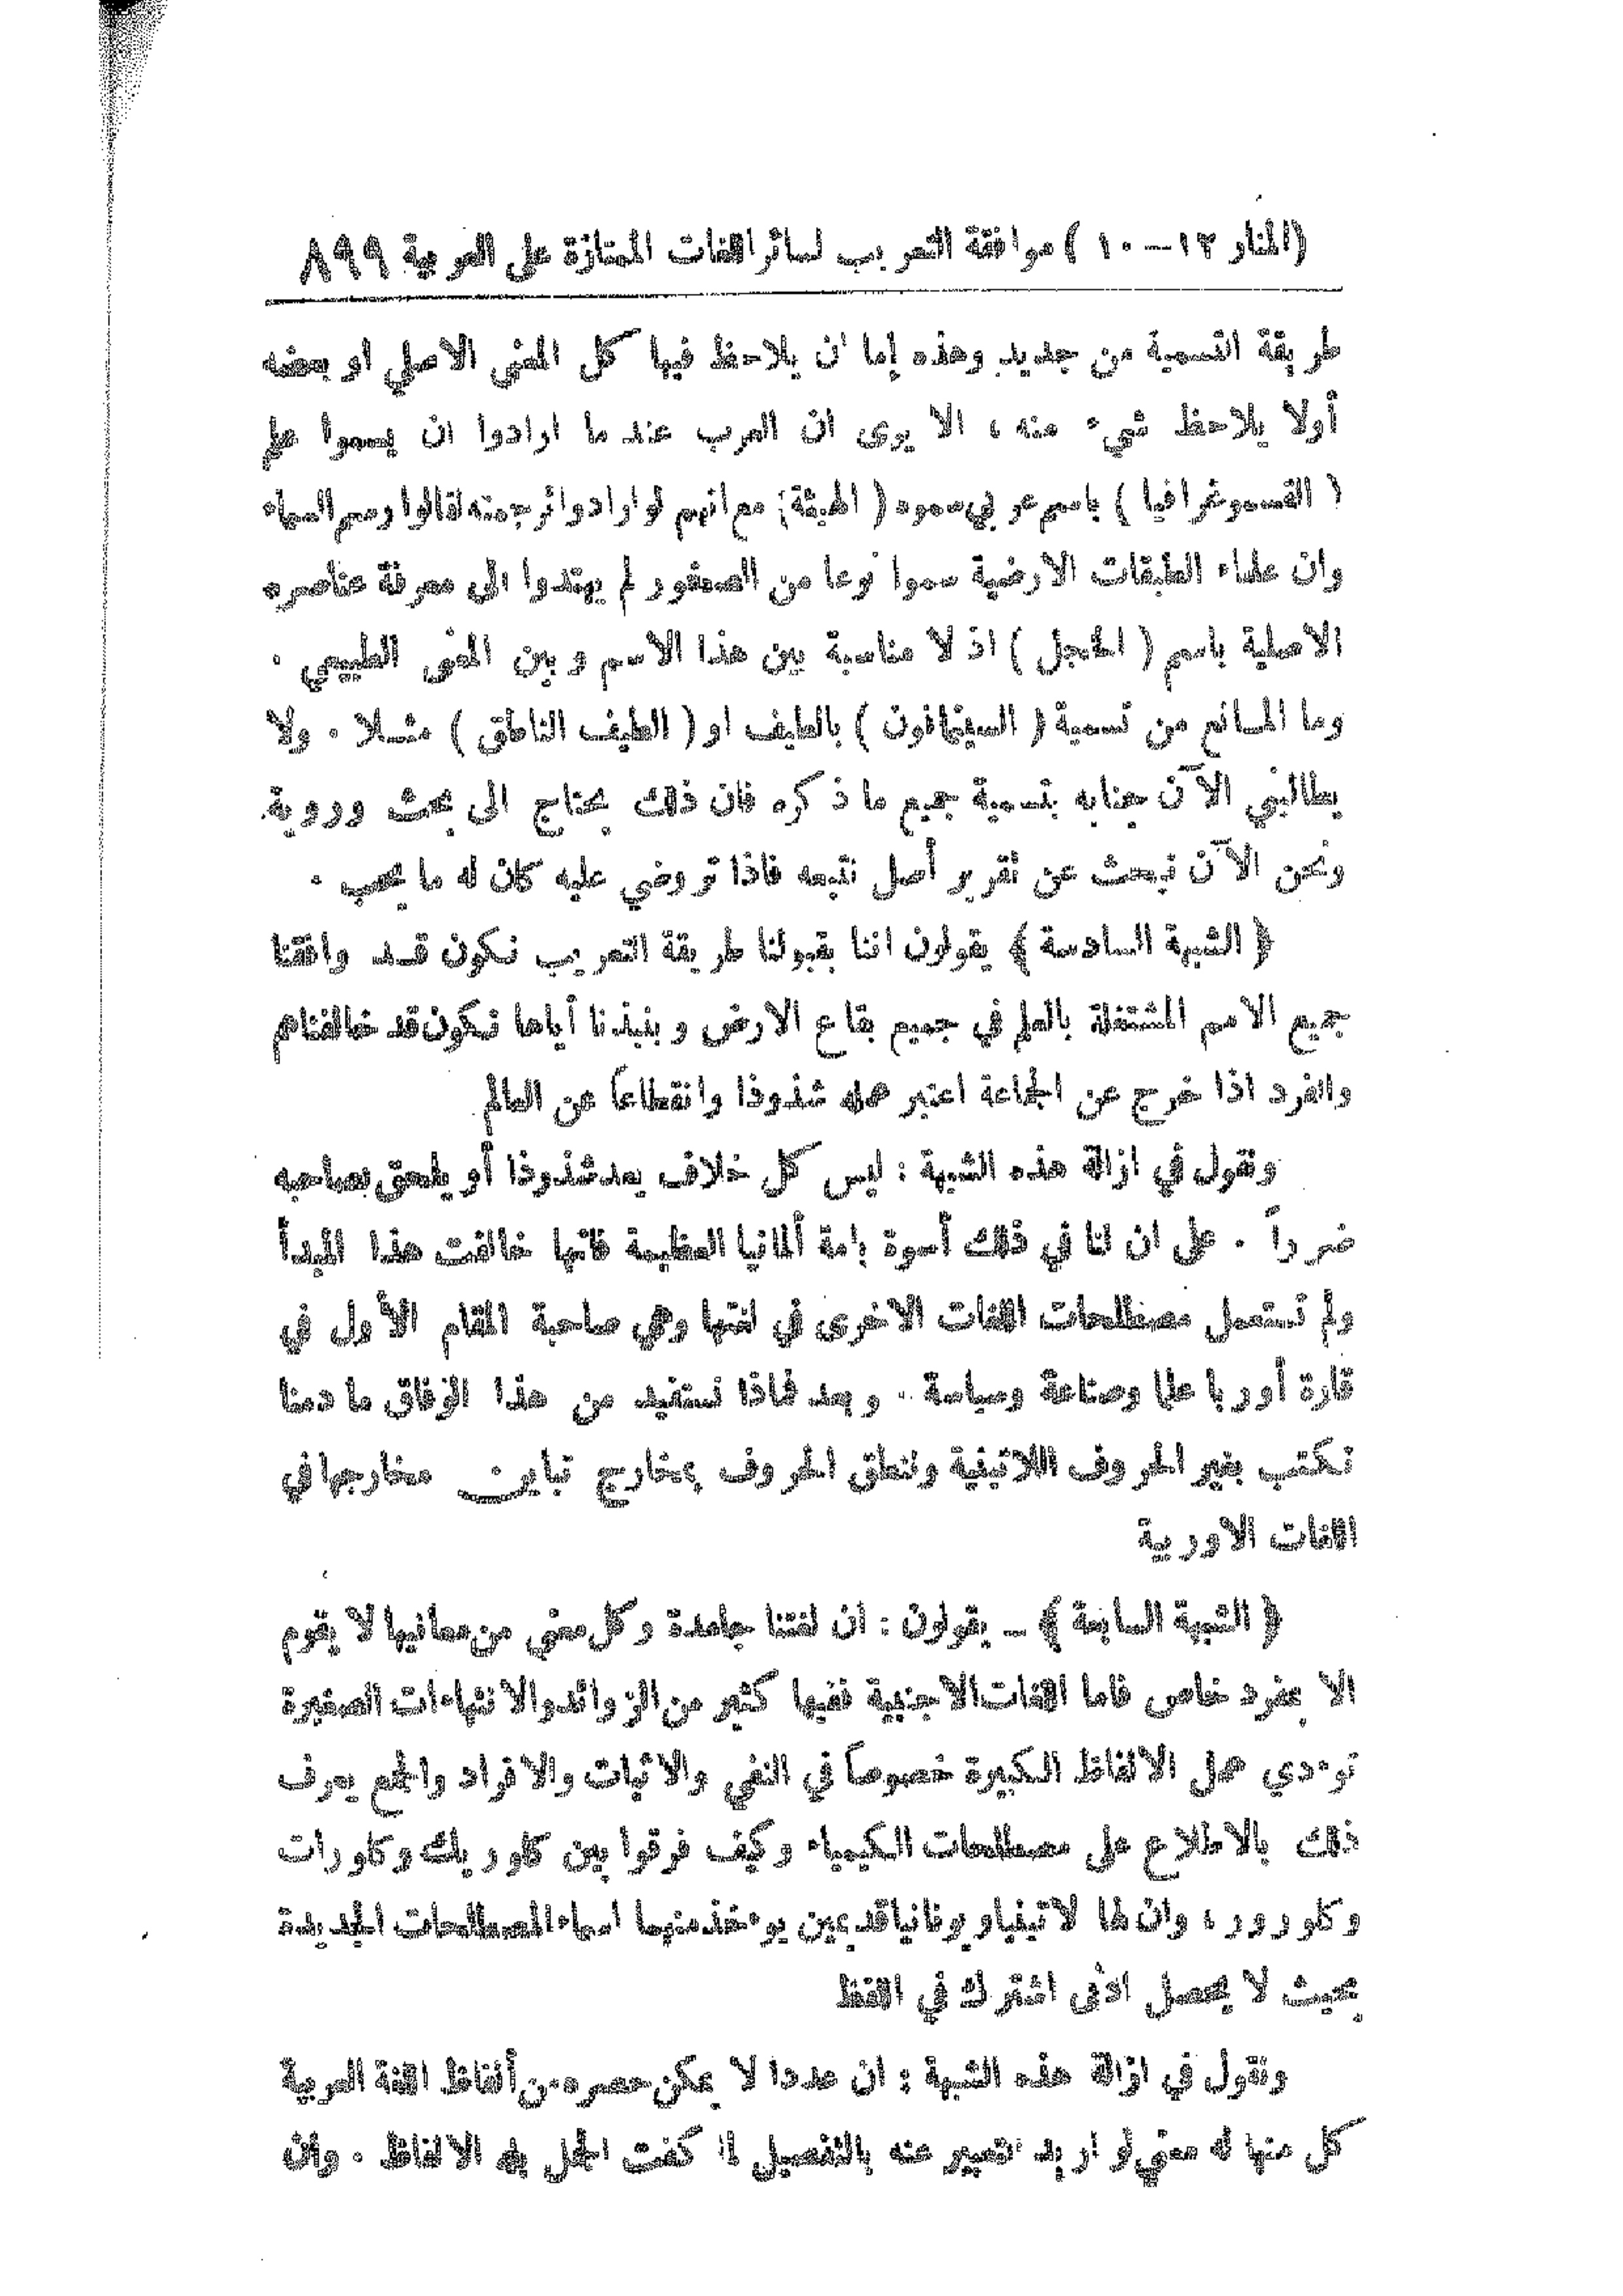 (المنار ١٢ – ١٠) موافقة التعريب لسائر اللغات الممتازة على العربية ٨٩٩
طريقة التسمية من جديد وهذه إما ان يلاحظ فيها كل المعنى الاصلي او بعضه
أولا يلاحظ شيء منه ، الا يرى ان العرب عند ما ارادوا ان يسموا علم
( القسموغرافيا ) باسم عربي سموه ( الهيئة ) مع انهم لو ارادوا ترجمته لقالوا رسم السماء
وان علماء الطبقات الارضية سموا نوعا من الصخور لم يهتدوا الى معرفة عناصره
الاصلية باسم ( الخجل ) اذ لا مناسبة بين هذا الاسم وبين المعنى الطبيعي .
وما المانع من تسمية ( السينمافون ) بالطيف او ( الطيف الناطق ) مثلا . ولا
يطالبني الآن جنابه بتسمية جميع ما ذكره فان ذلك يحتاج الى بحث وروية
ونحن الآن نبحث عن تقرير أصل نتبعه فاذا تروضي عليه كان له ما يحب .
﴿ الشبهة السادسة ﴾ يقولون اننا بقبولنا طريقة التعريب نكون قد وافقنا
جميع الامم المشتغلة بالعلم في جميع بقاع الارض وبنبذنا أياها نكون قد خالفناهم
والفرد اذا خرج عن الجماعة اعتبر عمله شذوذا وانقطاعاً عن العالم
ونقول في ازالة هذه الشبهة : ليس كل خلاف يعد شذوذا أو يلحق بصاحبه
ضرراً . على ان لنا في ذلك أسوة بامة ألمانيا العظيمة فانها خالفت هذا المبدأ
ولم تستعمل مصطلحات اللغات الاخرى في لغتها وهي صاحبة المقام الأول في
قارة أوربا علما وصناعة وسياسة . وبعد فماذا نستفيد من هذا الوفاق ما دمنا
نكتب بغير الحروف اللاتينية وننطق الحروف بمخارج تباين مخارجها في
اللغات الاوربية
﴿ الشبهة السابعة ﴾ – يقولون : ان لغتنا جامدة وكل معنى من معانيها لا يقوم
الا بمفرد خاص فاما اللغات الاجنبية ففيها كثير من الزوائد والانتهاءات الصغيرة
تؤدي عمل الالفاظ الكبيرة خصوصاً في النفي والاثبات والافراد والجمع يعرف
ذلك بالاطلاع على مصطلحات الكيمياء وكيف فرقوا بين كلوريك وكلورات
وكلورور ، وان لها لاتينيا ويونانيا قديمين يؤخذ منهما اسماء المصطلحات الجديدة
بحيث لا يحصل ادنى اشتراك في اللفظ
ونقول في ازالة هذه الشبهة : ان عددا لا يمكن حصره من ألفاظ اللغة العربية
كل منها له معنى لو اريد التعبير عنه بالتفصيل لما كفت الجمل بله الالفاظ . وان